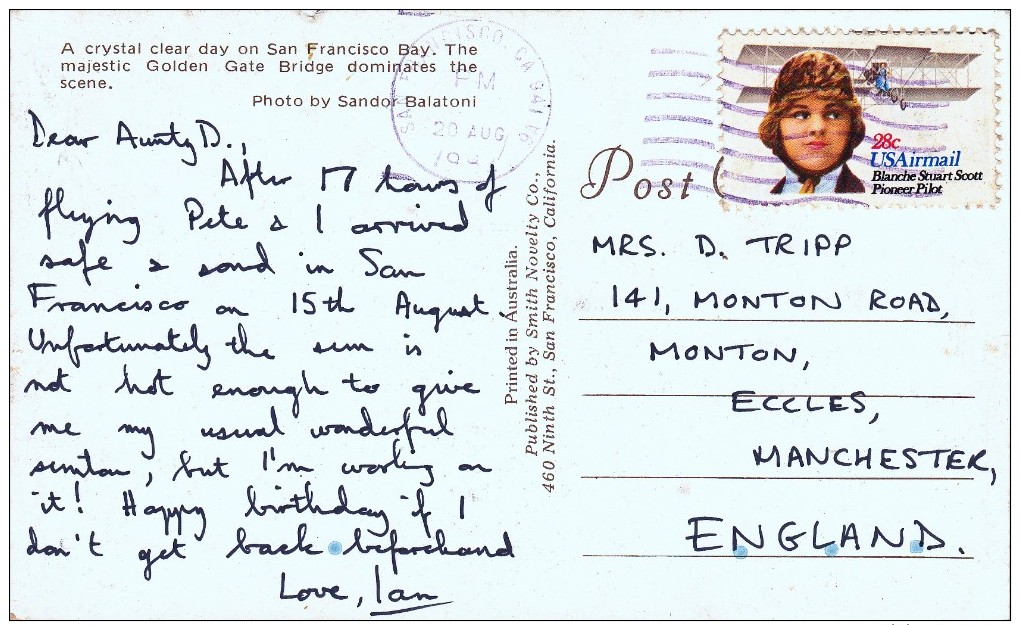 A crystal clear day on San Francisco Bay. The
majestic Golden Gate Bridge dominates the
scene.
Photo by Sandor Balatoni
Dear Aunty D.,
After 17 hours of
flying Pete & I arrived
safe & sond in San
Francisco on 15th August.
Unfortunately the sun is
not hot enough to give
me my usual wonderful
suntan, but I'm working on
it! Happy birthday if I
don't get back beforehand
Love, Ian
Printed in Australia.
Published by Smith Novelty Co.,
460 Ninth St., San Francisco, California.
SAN FRANCISCO, CA 941
PM
20 AUG
Post
28c
USAirmail
Blanche Stuart Scott
Pioneer Pilot
MRS. D. TRIPP
141, MONTON ROAD,
MONTON,
ECCLES,
MANCHESTER,
ENGLAND.